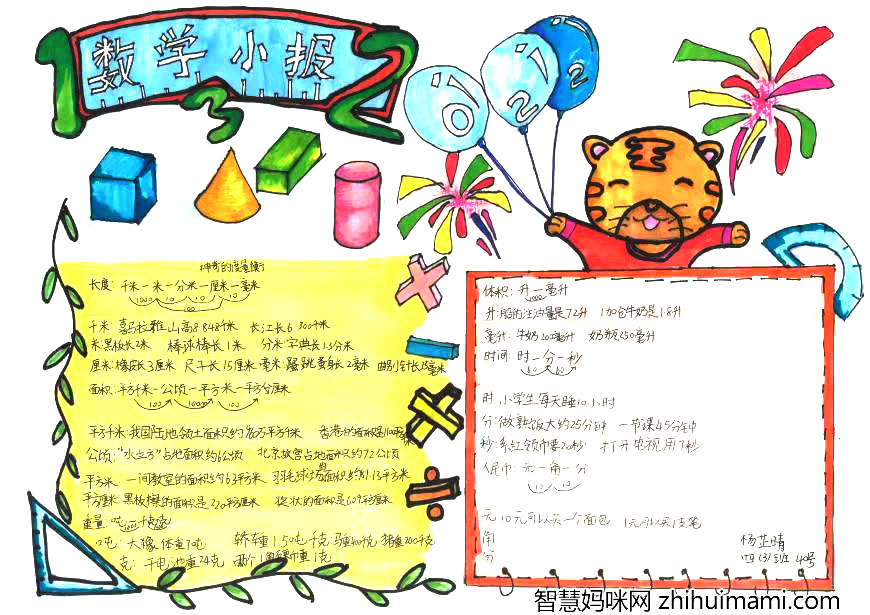 1 数学小报 2
3
0 2 2 2
王
神奇的度量衡
长度: 千米一米一分米一厘米一毫米
1000 10 10 10
100
千米 喜马拉雅山高8.848千米 长江长6300千米
米:黑板长2米 棒球棒长1米 分米:字典长1.5分米
厘米:橡皮长3厘米 尺子长15厘米 毫米:跳蚤身长2毫米 曲别针长毫米
面积: 平方千米一公顷一平方米一平方分厘米
100 10000 100
平方千米:我国陆地领土面积约960万平方千米 香港的面积是1100平方千米
公顷:“水立方”占地面积约6公顷 北京故宫占地面积约72公顷
平方米: 一间教室的面积约63平方米 羽毛球场的面积约81.13平方米
平方厘米:黑板擦的面积是220平方厘米 奖状的面积是609平方厘米
重量 吨一千克一克
吨: 大象体重7吨 轿车重1.5吨 千克:马重400千克 猪重200千克
克: 干电池重24克 两个1角硬币重1克
体积: 升一毫升
1000
升:船的注油量是72升 1加仑牛奶是1.8升
毫升: 牛奶200毫升 奶瓶250毫升
时间: 时一分一秒
时:小学生每天睡10小时
分:做熟饭大约25分钟 一节课45分钟
秒:系红领巾要20秒 打开电视用7秒
人民币: 元一角一分
10 10
元 10元可以买一个面包 1元可以买1支笔
角
分
杨芷晴
四(3)班 40号
智慧妈咪网 zhihuimami.com